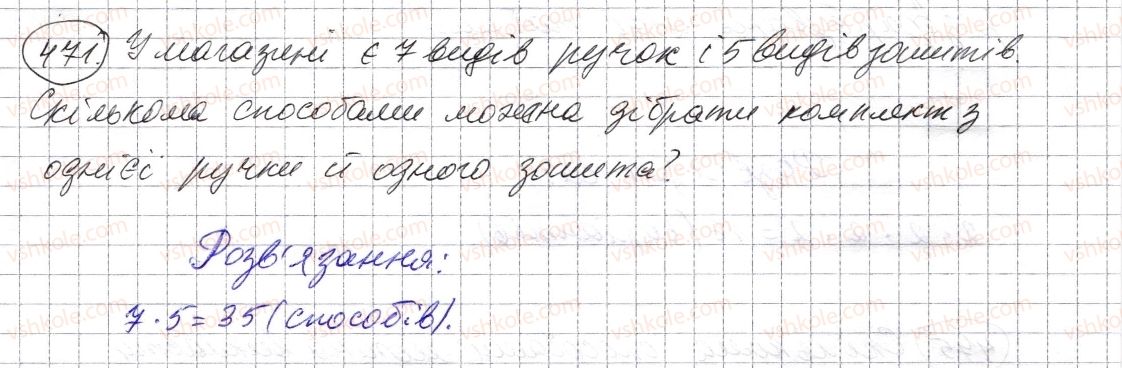 471. У магазині є 7 видів ручок і 5 видів зошитів.
Скількома способами можна дібрати комплект з
однієї ручки й одного зошита?
Розв'язання:
7 · 5 = 35 (способів).